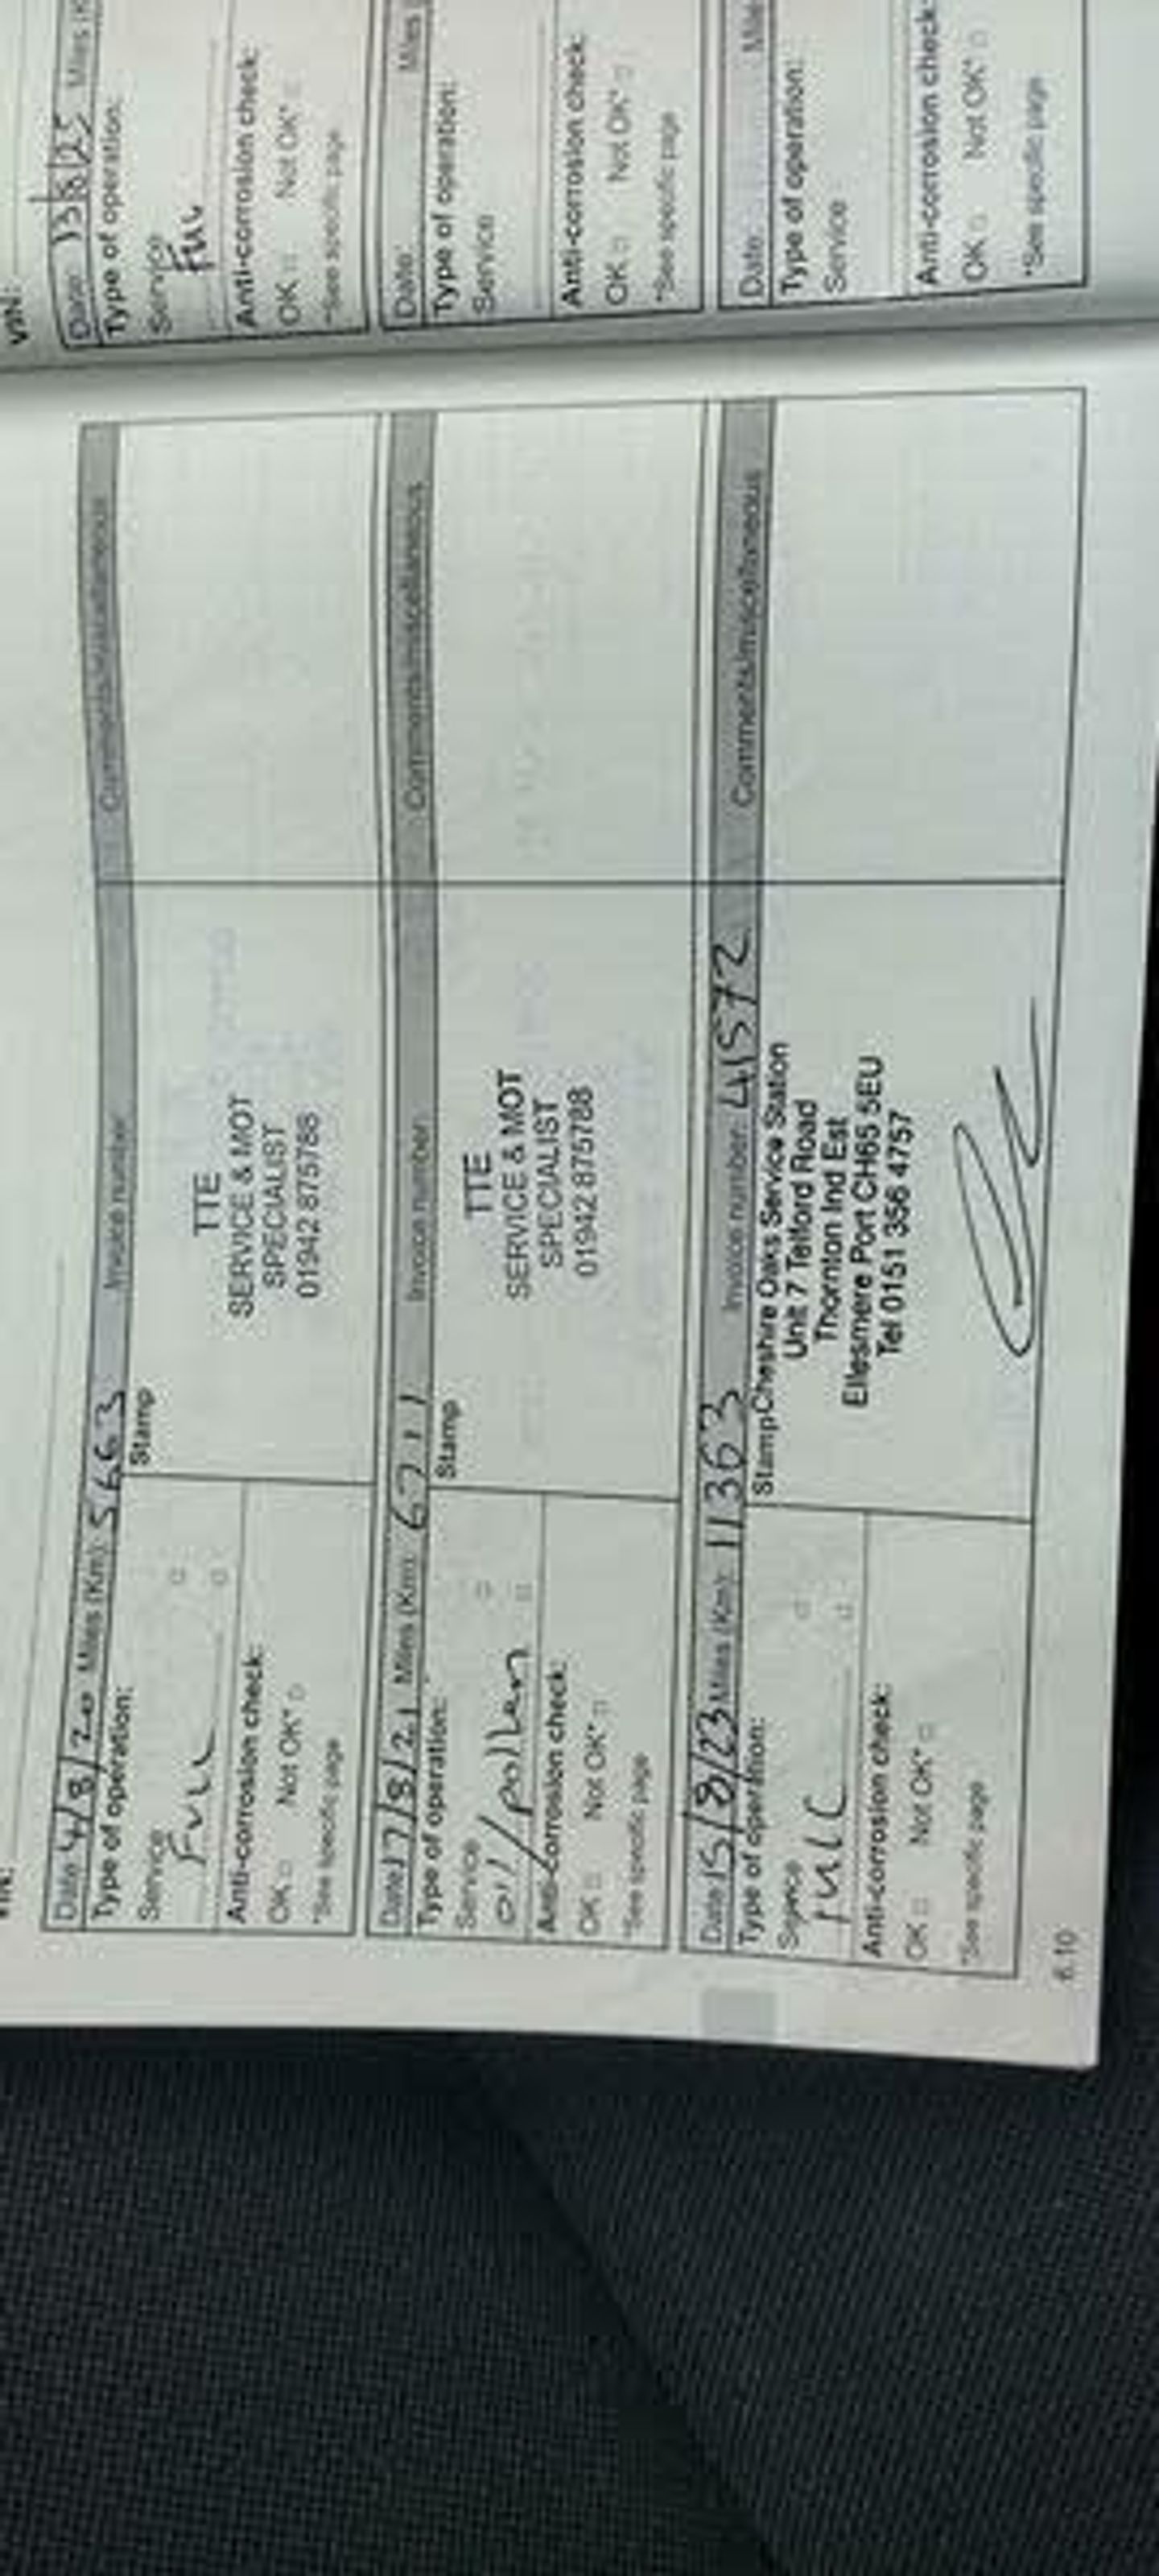 VIN:
Date 4/8/20 Miles (Km) 5663 Invoice number Comments/miscellaneous
Type of operation: Stamp
Service
Full
TTE
SERVICE & MOT
SPECIALIST
01942 875788
Anti-corrosion check:
OK Not OK*
*See specific page
Date 17/8/21 Miles (Km) 6711 Invoice number Comments/miscellaneous
Type of operation: Stamp
Service
oil/pollen
TTE
SERVICE & MOT
SPECIALIST
01942 875788
Anti-corrosion check:
OK Not OK*
*See specific page
Date 15/8/23 Miles (Km) 11363 Invoice number 41572 Comments/miscellaneous
Type of operation: Stamp
Service
Full
Cheshire Oaks Service Station
Unit 7 Telford Road
Thornton Ind Est
Ellesmere Port CH65 5EU
Tel 0151 356 4757
Anti-corrosion check:
OK Not OK*
*See specific page
6.10
VIN:
Date 13/8/25 Miles (K
Type of operation:
Service
Full
Anti-corrosion check:
OK Not OK*
*See specific page
Date Miles (
Type of operation:
Service
Anti-corrosion check:
OK Not OK*
*See specific page
Date Mile
Type of operation:
Service
Anti-corrosion check:
OK Not OK*
*See specific page